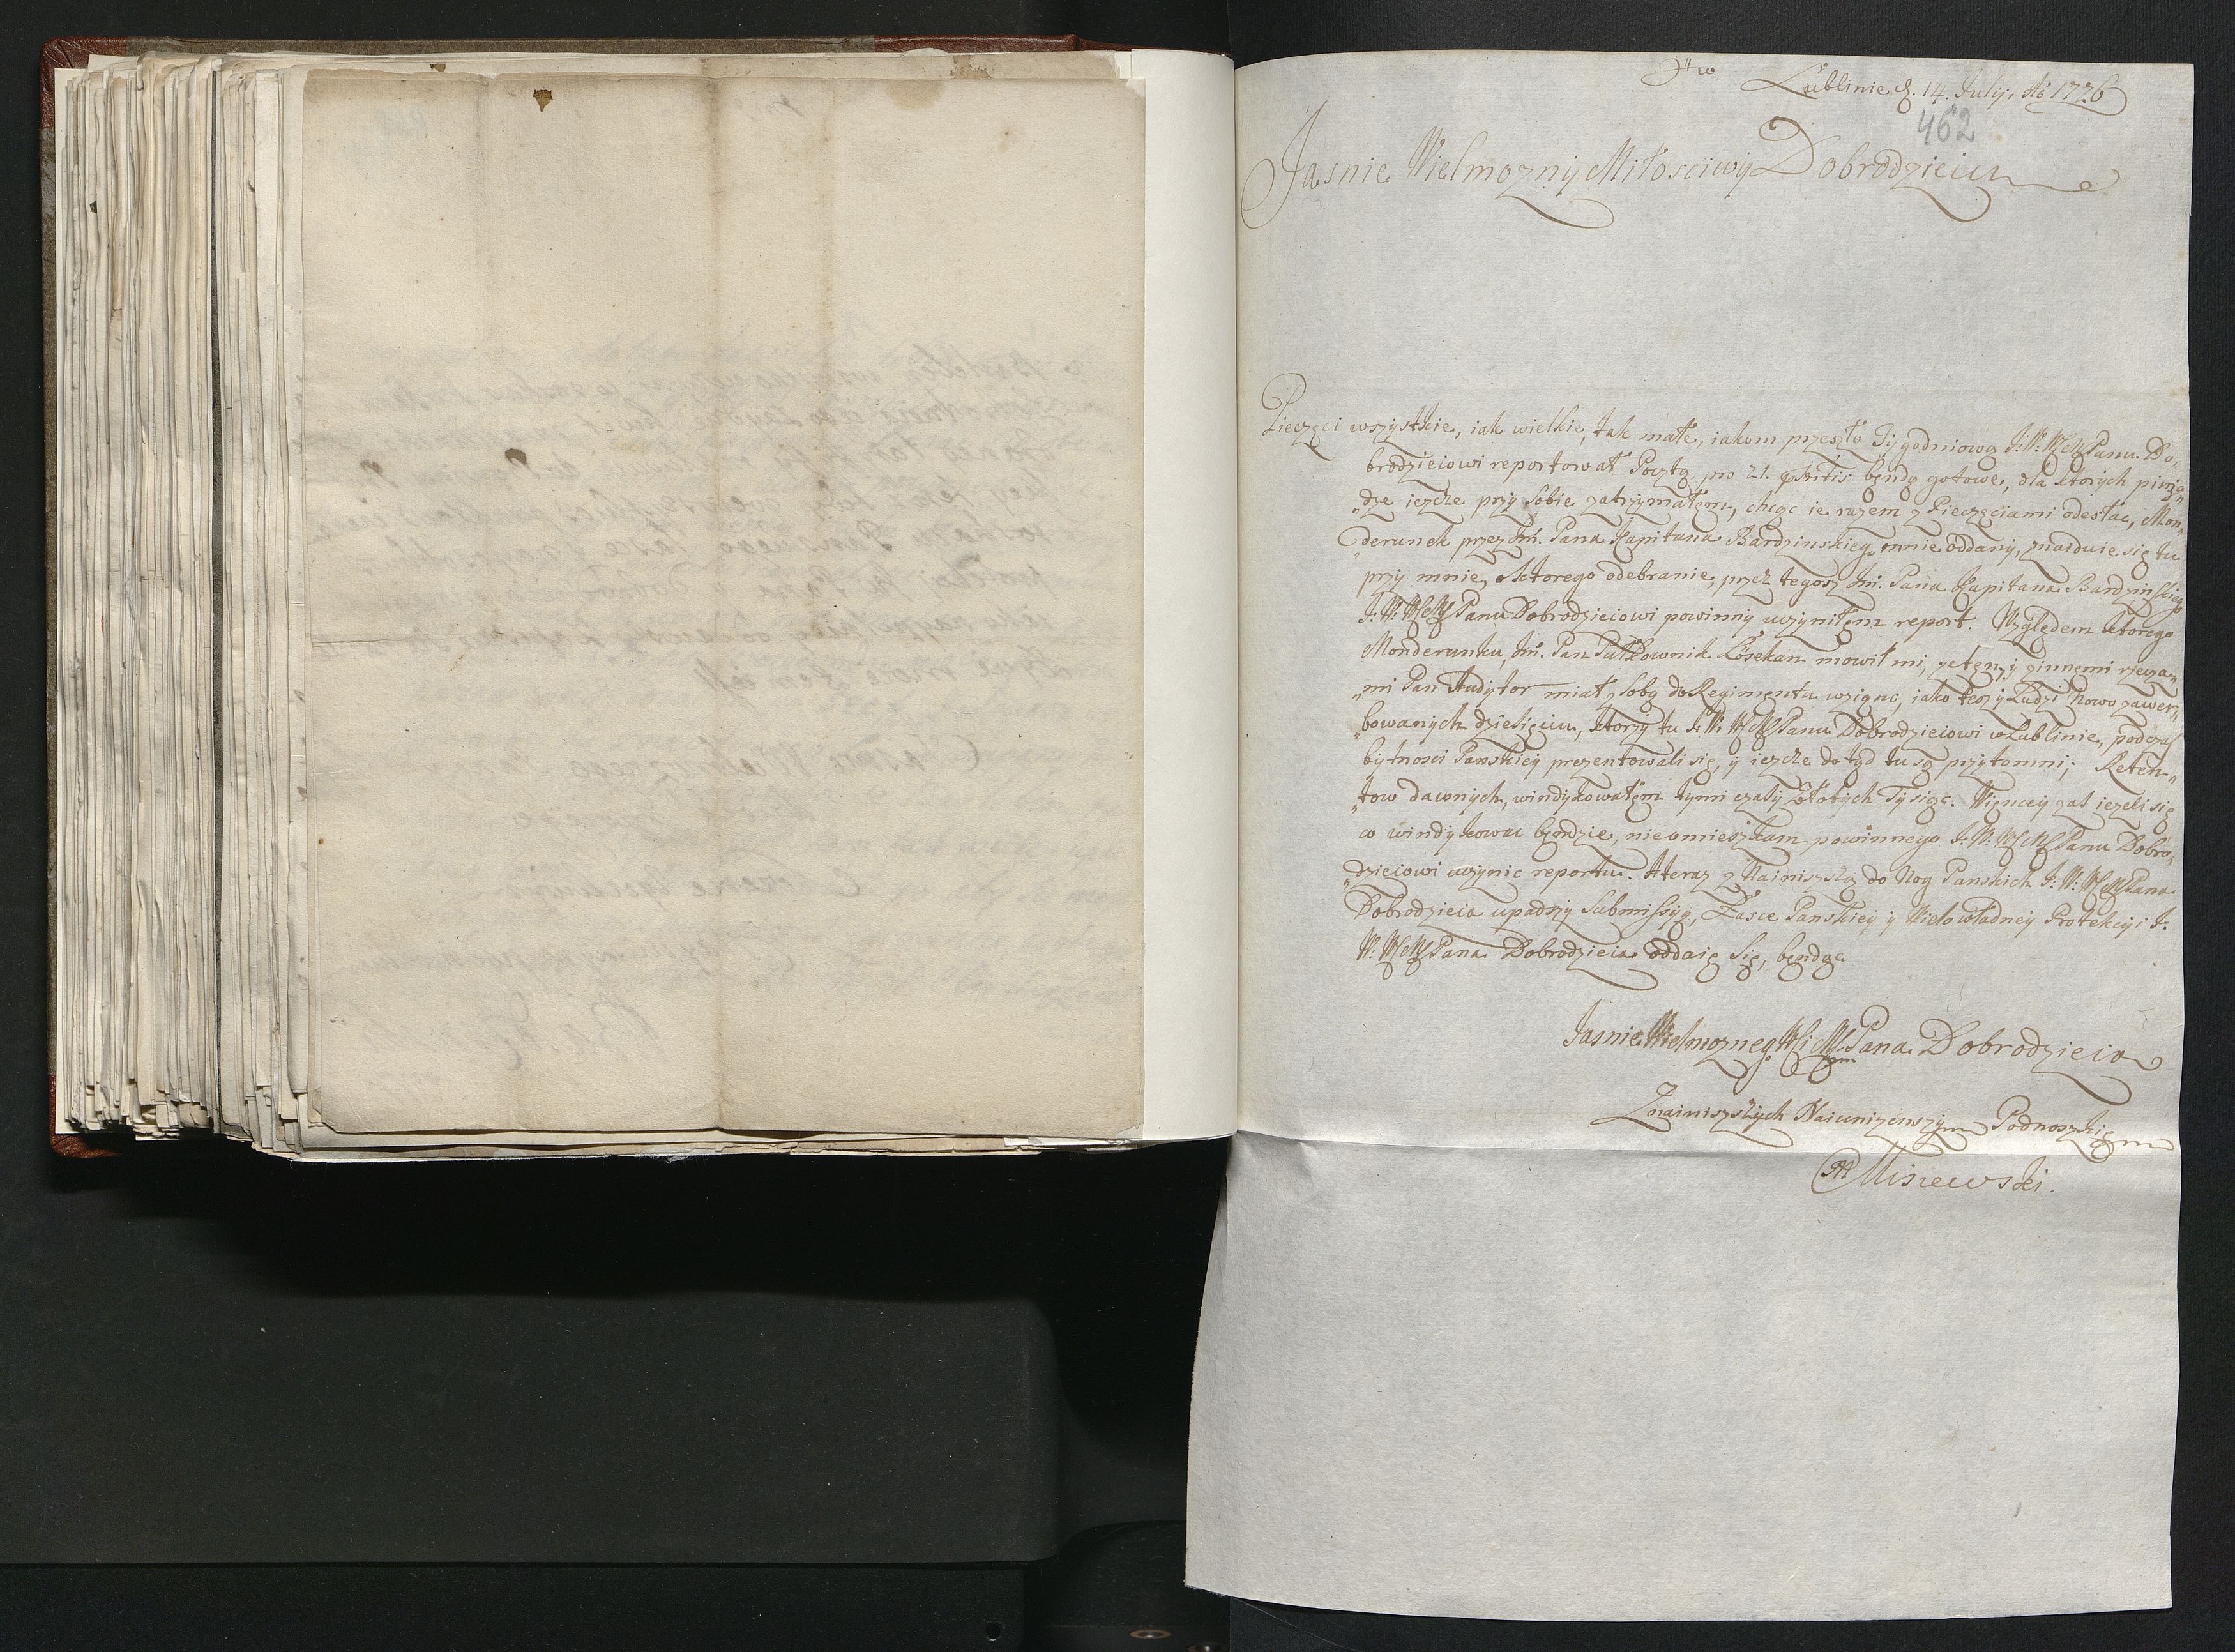 w Lublinie, d. 14. July. Ao 1726
462
Jasnie Wielmozny Miłosciwy Dobrodzieiu
Pieczęci wszystkie, iak wielkie, tak małe, iakom przeszło Tygodniową J: W: WM Panu Do„
brodzieiowi reportował Pocztą, pro 21. bęndą gotowe, dla ktorych pinią„
„dze ieszcze przy sobie zatrzymałem, chcąc ie razem z Pieczęciami odesłac, Mon„
„derunek przez Jm. Pana Kapitana Bardzinskieg. mnie oddany, znaiduie się tu
przy mnie, ktorego odebranie, przez tegosz Jm. Pana Kapitana Bardzinskieg
J: W: WM Panu Dobrodzieiowi powinny uczyniłem report. Względem ktorego
Monderunku, Jm. Pan Pułkownik Lösekan mowił mi, ze ten, y z innemi rzecza„
„mi Pan Auditor miał z sobą do Regimentu wziąnc, iako tesz y Ludzi Nowo zawer„
„bowanych dziesięciu, ktorzy tu J: W: WM Panu Dobrodzieiowi w Lublinie, podczas
bytnosci Panskiey prezentowali się, y ieszcze do tąd tu są przytomni; Reten„
„tow dawnych, windykowałem tymi czasy Złotych Tysiąc. Więncey zas iezeli się
co windykowac bęndzie, nieomieszkam powinnego J: W: WM Panu Dobro„
„dzieiowi uczynic reportu. A teraz z Nainiszszą do Nog Panskich J: W: WM Pana
Dobrodzieia upadszy Submissyą, Łasce Panskiey y Wielowładney Protekcyi J:
W: WM Pana Dobrodzieia oddaię się, bendąc
Jasnie Wielmoznego WM Pana Dobrodzieia
Znainiszszych Naiunizenszym Podnoszkiem
Misiewski.